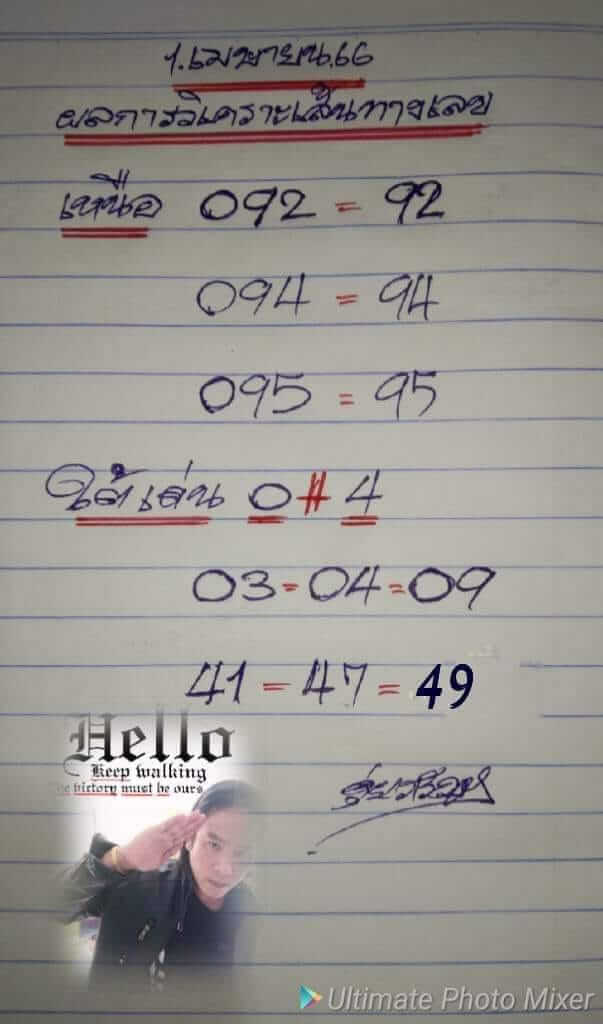 1.เมษายน.66
ผลการวิเคราะเส้นทางเลข
เหนือ 092 = 92
094 = 94
095 = 95
ใต้เด่น 0 # 4
03 - 04 = 09
41 - 47 = 49
Hello
Keep walking
victory must be ours
Ultimate Photo Mixer